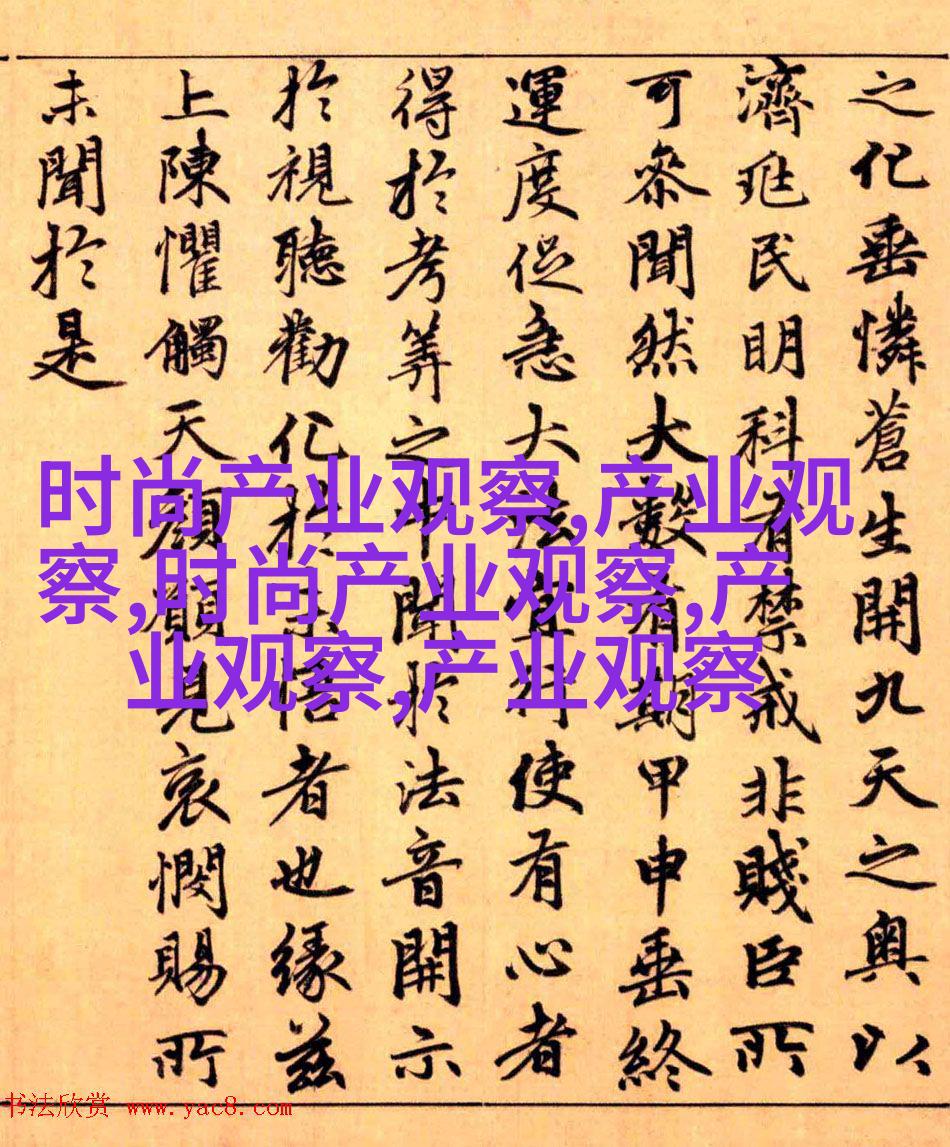 之化垂憐蒼生開九天之奧以
濟兆民明科有禁戒非賤臣所
可叅聞然大數有期甲申垂終
運度促急大法宜行使有心者
得於考筭之中聞於法音開示
於視聽勸化於未悟者也緣茲
上陳懼觸天顏願見哀憫賜所
未聞於是
时尚产业观察,产业观
察,时尚产业观察,产
业观察,产业观察
书法欣赏 www.yac8.com